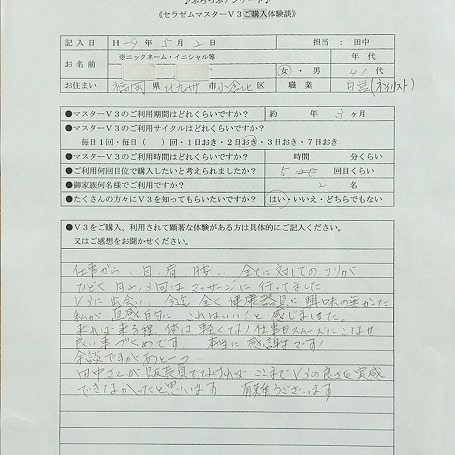 ♪ぷらっぷアンケート♪
《セラゼムマスターV3ご購入体験談》
記入日 H29年5月2日 担当：田中
お名前 ※ニックネーム・イニシャル等 年代
女・男 41代
お住まい 福岡県北九州市小倉北区 職業 自営(ネイリスト)
●マスターV3のご利用期間はどれくらいですか？ 約 年 3ヶ月
●マスターV3のご利用サイクルはどれくらいですか？
毎日1回・毎日（ ）回・1日おき・2日おき・3日おき・7日おき
●マスターV3のご利用時間はどれくらいですか？ 時間 分くらい
●ご利用何回目位で購入したいと考えられましたか？ 5 回目くらい
●御家族何名様でご利用ですか？ 2名
●たくさんの方々にV3を知ってもらいたいですか？ はい・いいえ・どちらでもない
●V3をご購入、利用されて顕著な体験がある方は具体的にご記入ください。
又はご感想をお聞かせください。
仕事から、目、肩、腰、全てに対してのコリが
ひどく月2、3回はマッサージに行ってました。
V3に出会い、今迄全く健康器具に興味の無かった
私が直感的にこれはいい！と感じました。
来れば来る程、体は軽くなり仕事もスムーズにこなせ
良い事づくめです。本当に感謝です！
余談ですがあと一つ…
田中さんが販売員でなければここまでV3の良さを実感
できなかったと思います 有難うございます